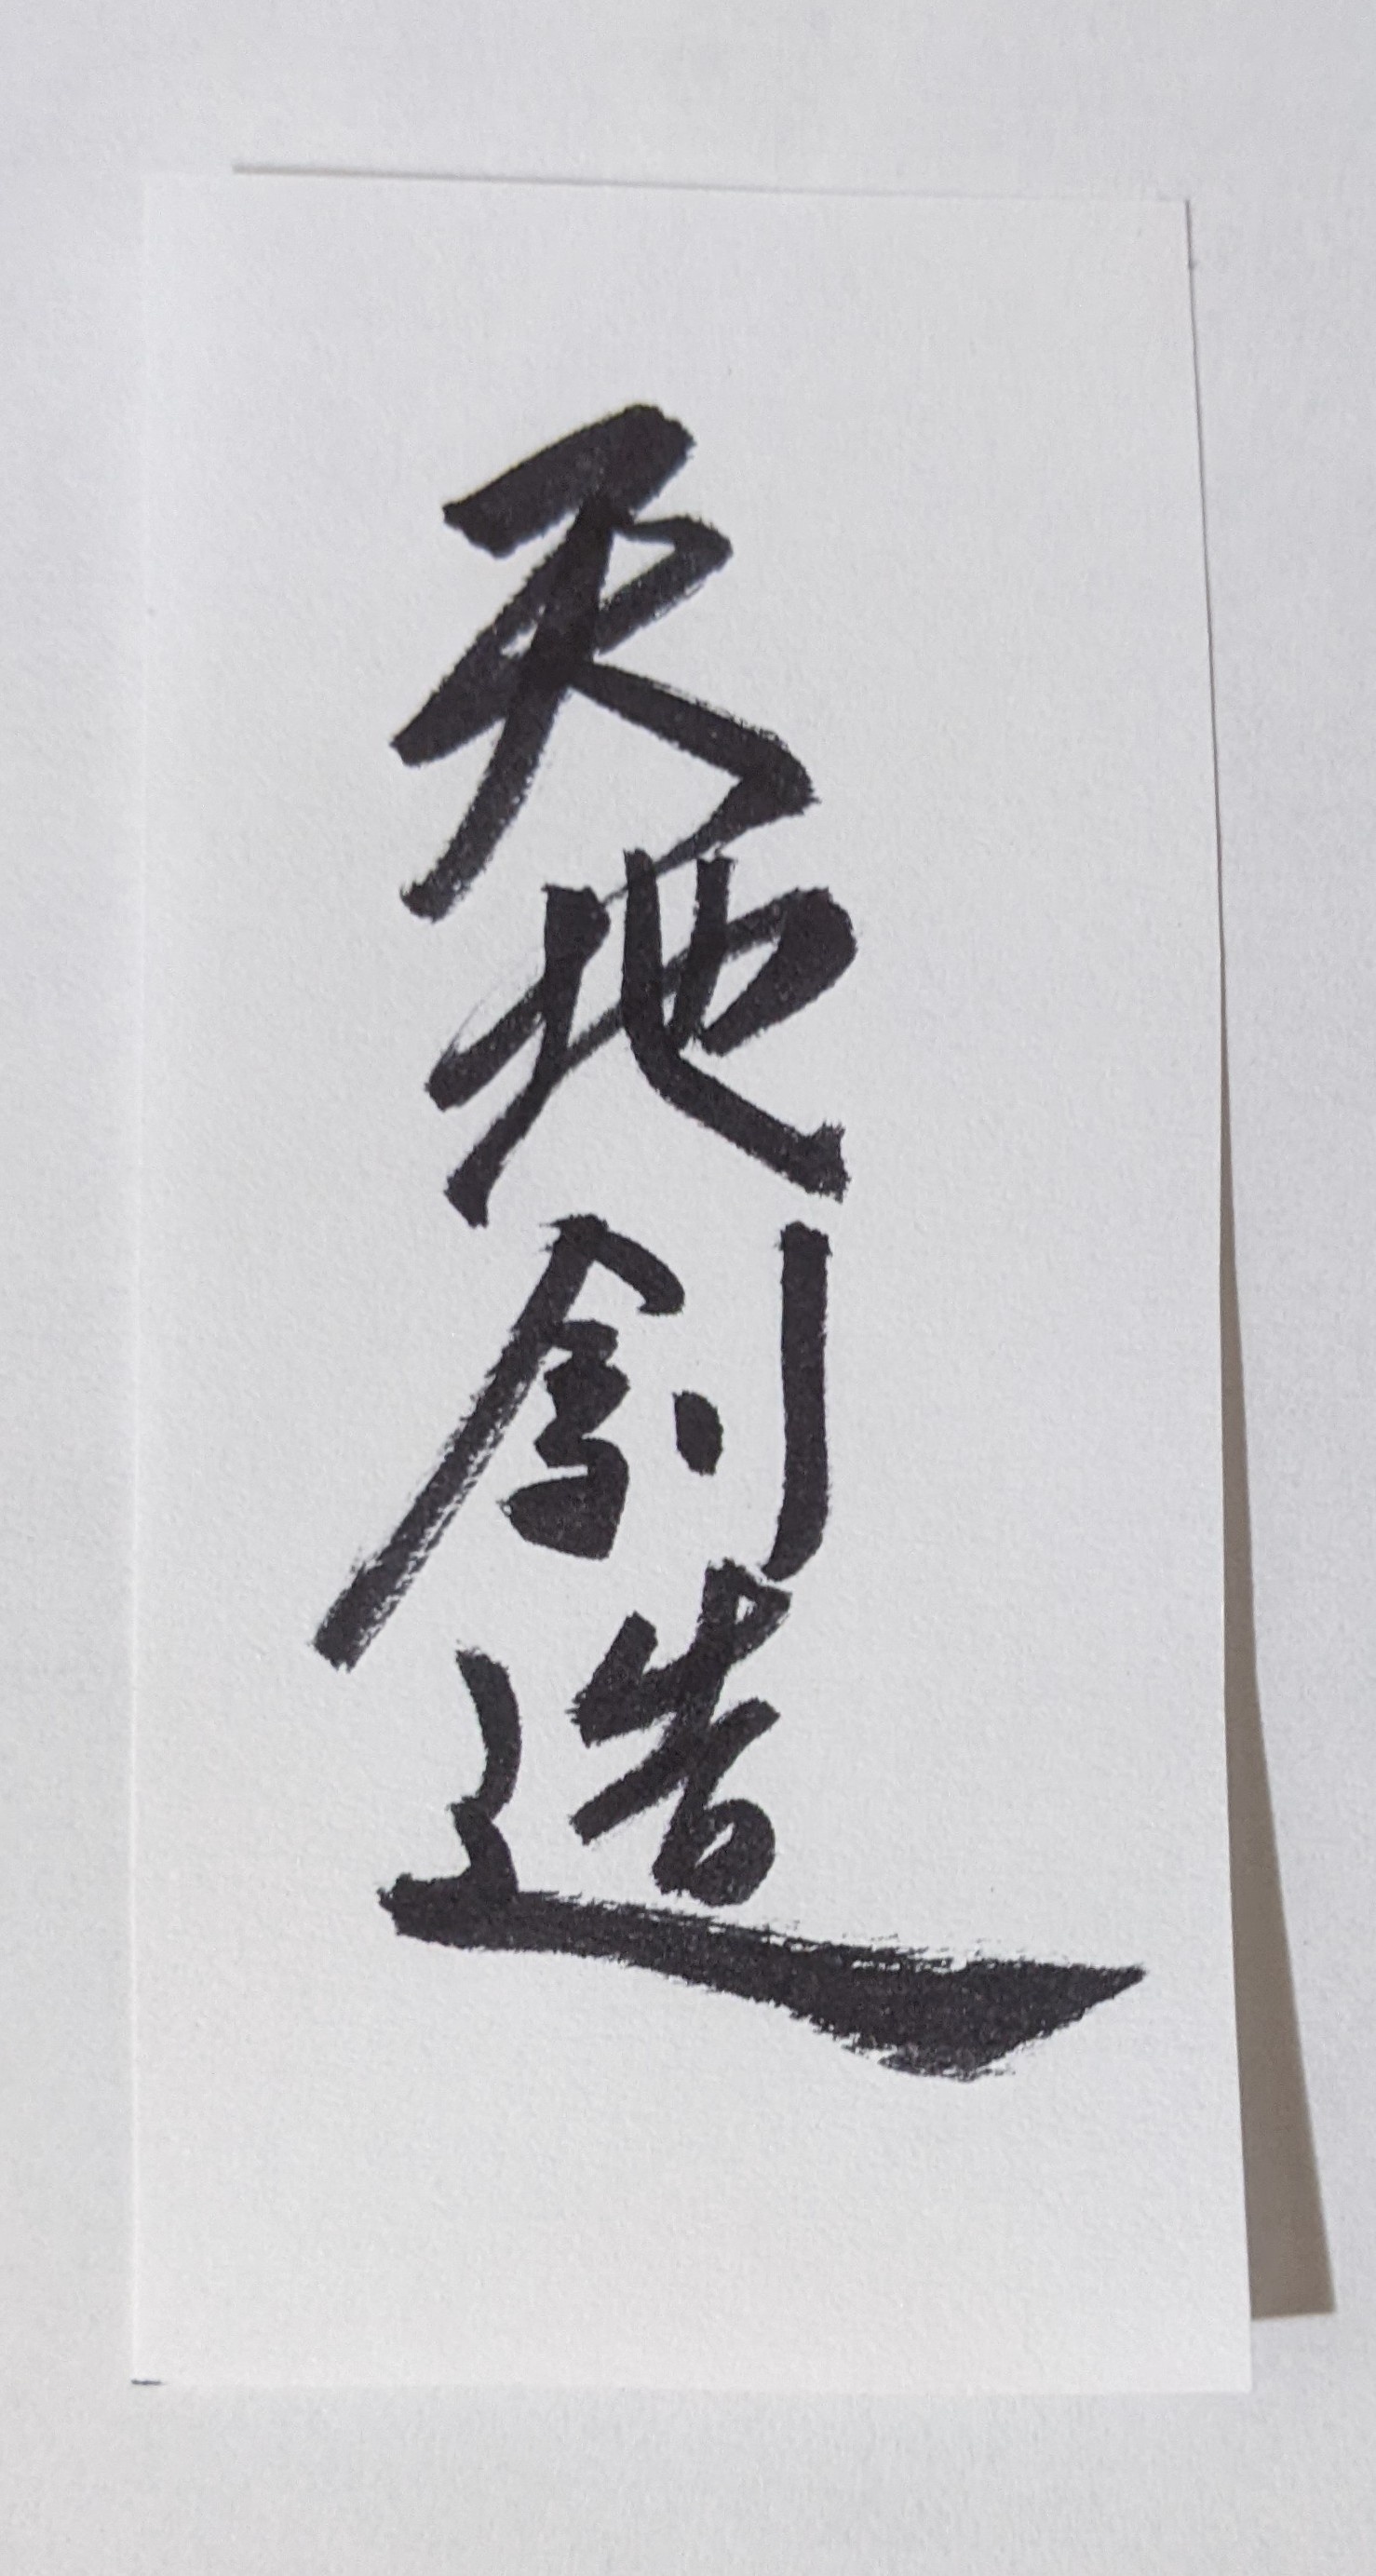 天地創造